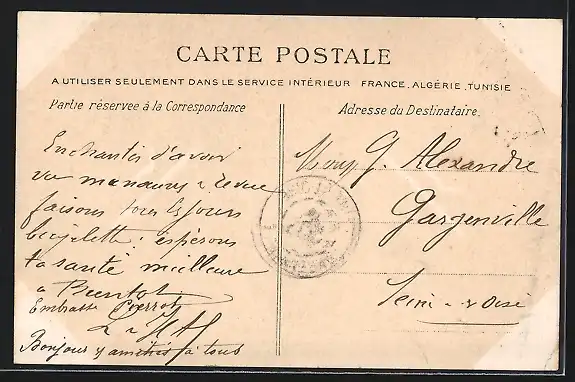 CARTE POSTALE
A UTILISER SEULEMENT DANS LE SERVICE INTÉRIEUR FRANCE, ALGÉRIE, TUNISIE
Partie réservée à la Correspondance
Adresse du Destinataire.
Enchantés d'avoir
vu manœuv & revue
faisons tous les jours
bicyclette; espérons
ta santé meilleure
à Bientôt
Embrasse Pierrot
Bonjour & amitiés à tous
G. Alexandre
Gargenville
Seine & Oise